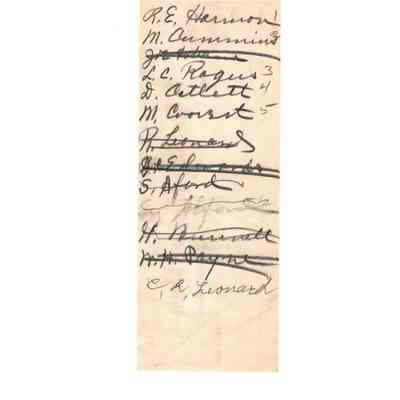 R.E. Harmon 1
M. Cummins 2
L.C. Rogers 3
D. Catlett 4
M. Coovest 5
R. Leonard
J.E. Edwards
S. Aford
H. Bunnell
W.H. Payne
C. R. Leonard